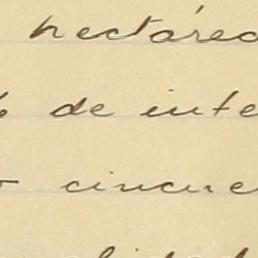 hectárea
% de inte
cincue